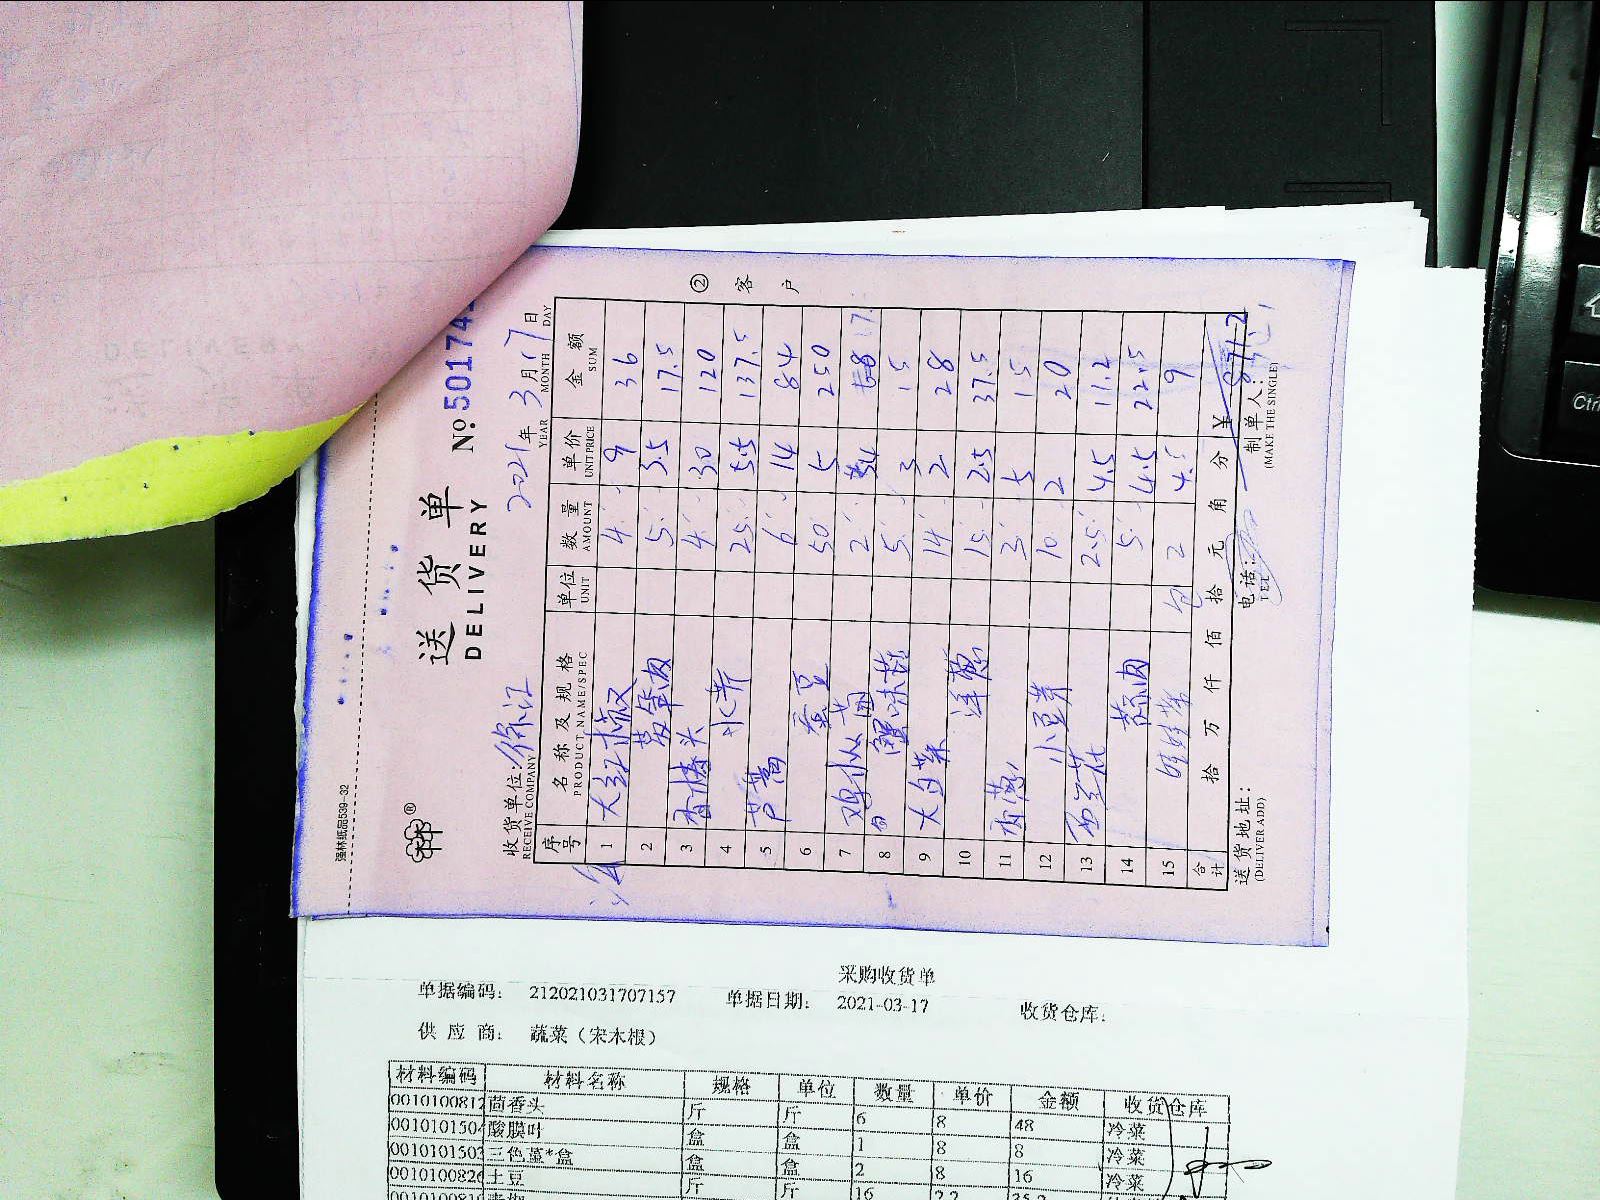 强林纸品539-32
送货单
DELIVERY
No.50174
收货单位:徐江 2021年3月17日
RECEIVE COMPANY YEAR MONTH DAY
序号 名称及规格 单位 数量 单价 金额
PRODUCT NAME/SPEC UNIT AMOUNT UNIT PRICE SUM
1 大红椒 4 9 36
2 5 3.5 17.5
3 香椿头 4 30 120
4 水芹 25 5.5 137.5
5 芦蒿 6 14 84
6 蚕豆 50 5 250
7 2 34 68
8 蟹味菇 5 3 15
9 大白菜 14 2 28
10 洋葱 15 2.5 37.5
11 香葱 3 5 15
12 小豆芽 10 2 20
13 西兰花 2.5 4.5 11.2
14 5 4.5 22.5
15 娃娃菜 包 2 4.5 9
合计 拾 万 仟 佰 拾 元 角 分 ¥ 871.2
送货地址: 电话: 制单人:
(DELIVER ADD) TEL (MAKE THE SINGLE)
② 客户
采购收货单
单据编码: 212021031707157 单据日期: 2021-03-17 收货仓库:
供应商: 蔬菜(宋木根)
材料编码 材料名称 规格 单位 数量 单价 金额 收货仓库
0010100812 茴香头 斤 斤 6 8 48 冷菜
001010150 酸膜叶 盒 盒 1 8 8 冷菜
0010101503 三色堇*盒 盒 盒 2 8 16 冷菜
0010100826 土豆 斤 斤 16 2.2 35.2
Ctrl